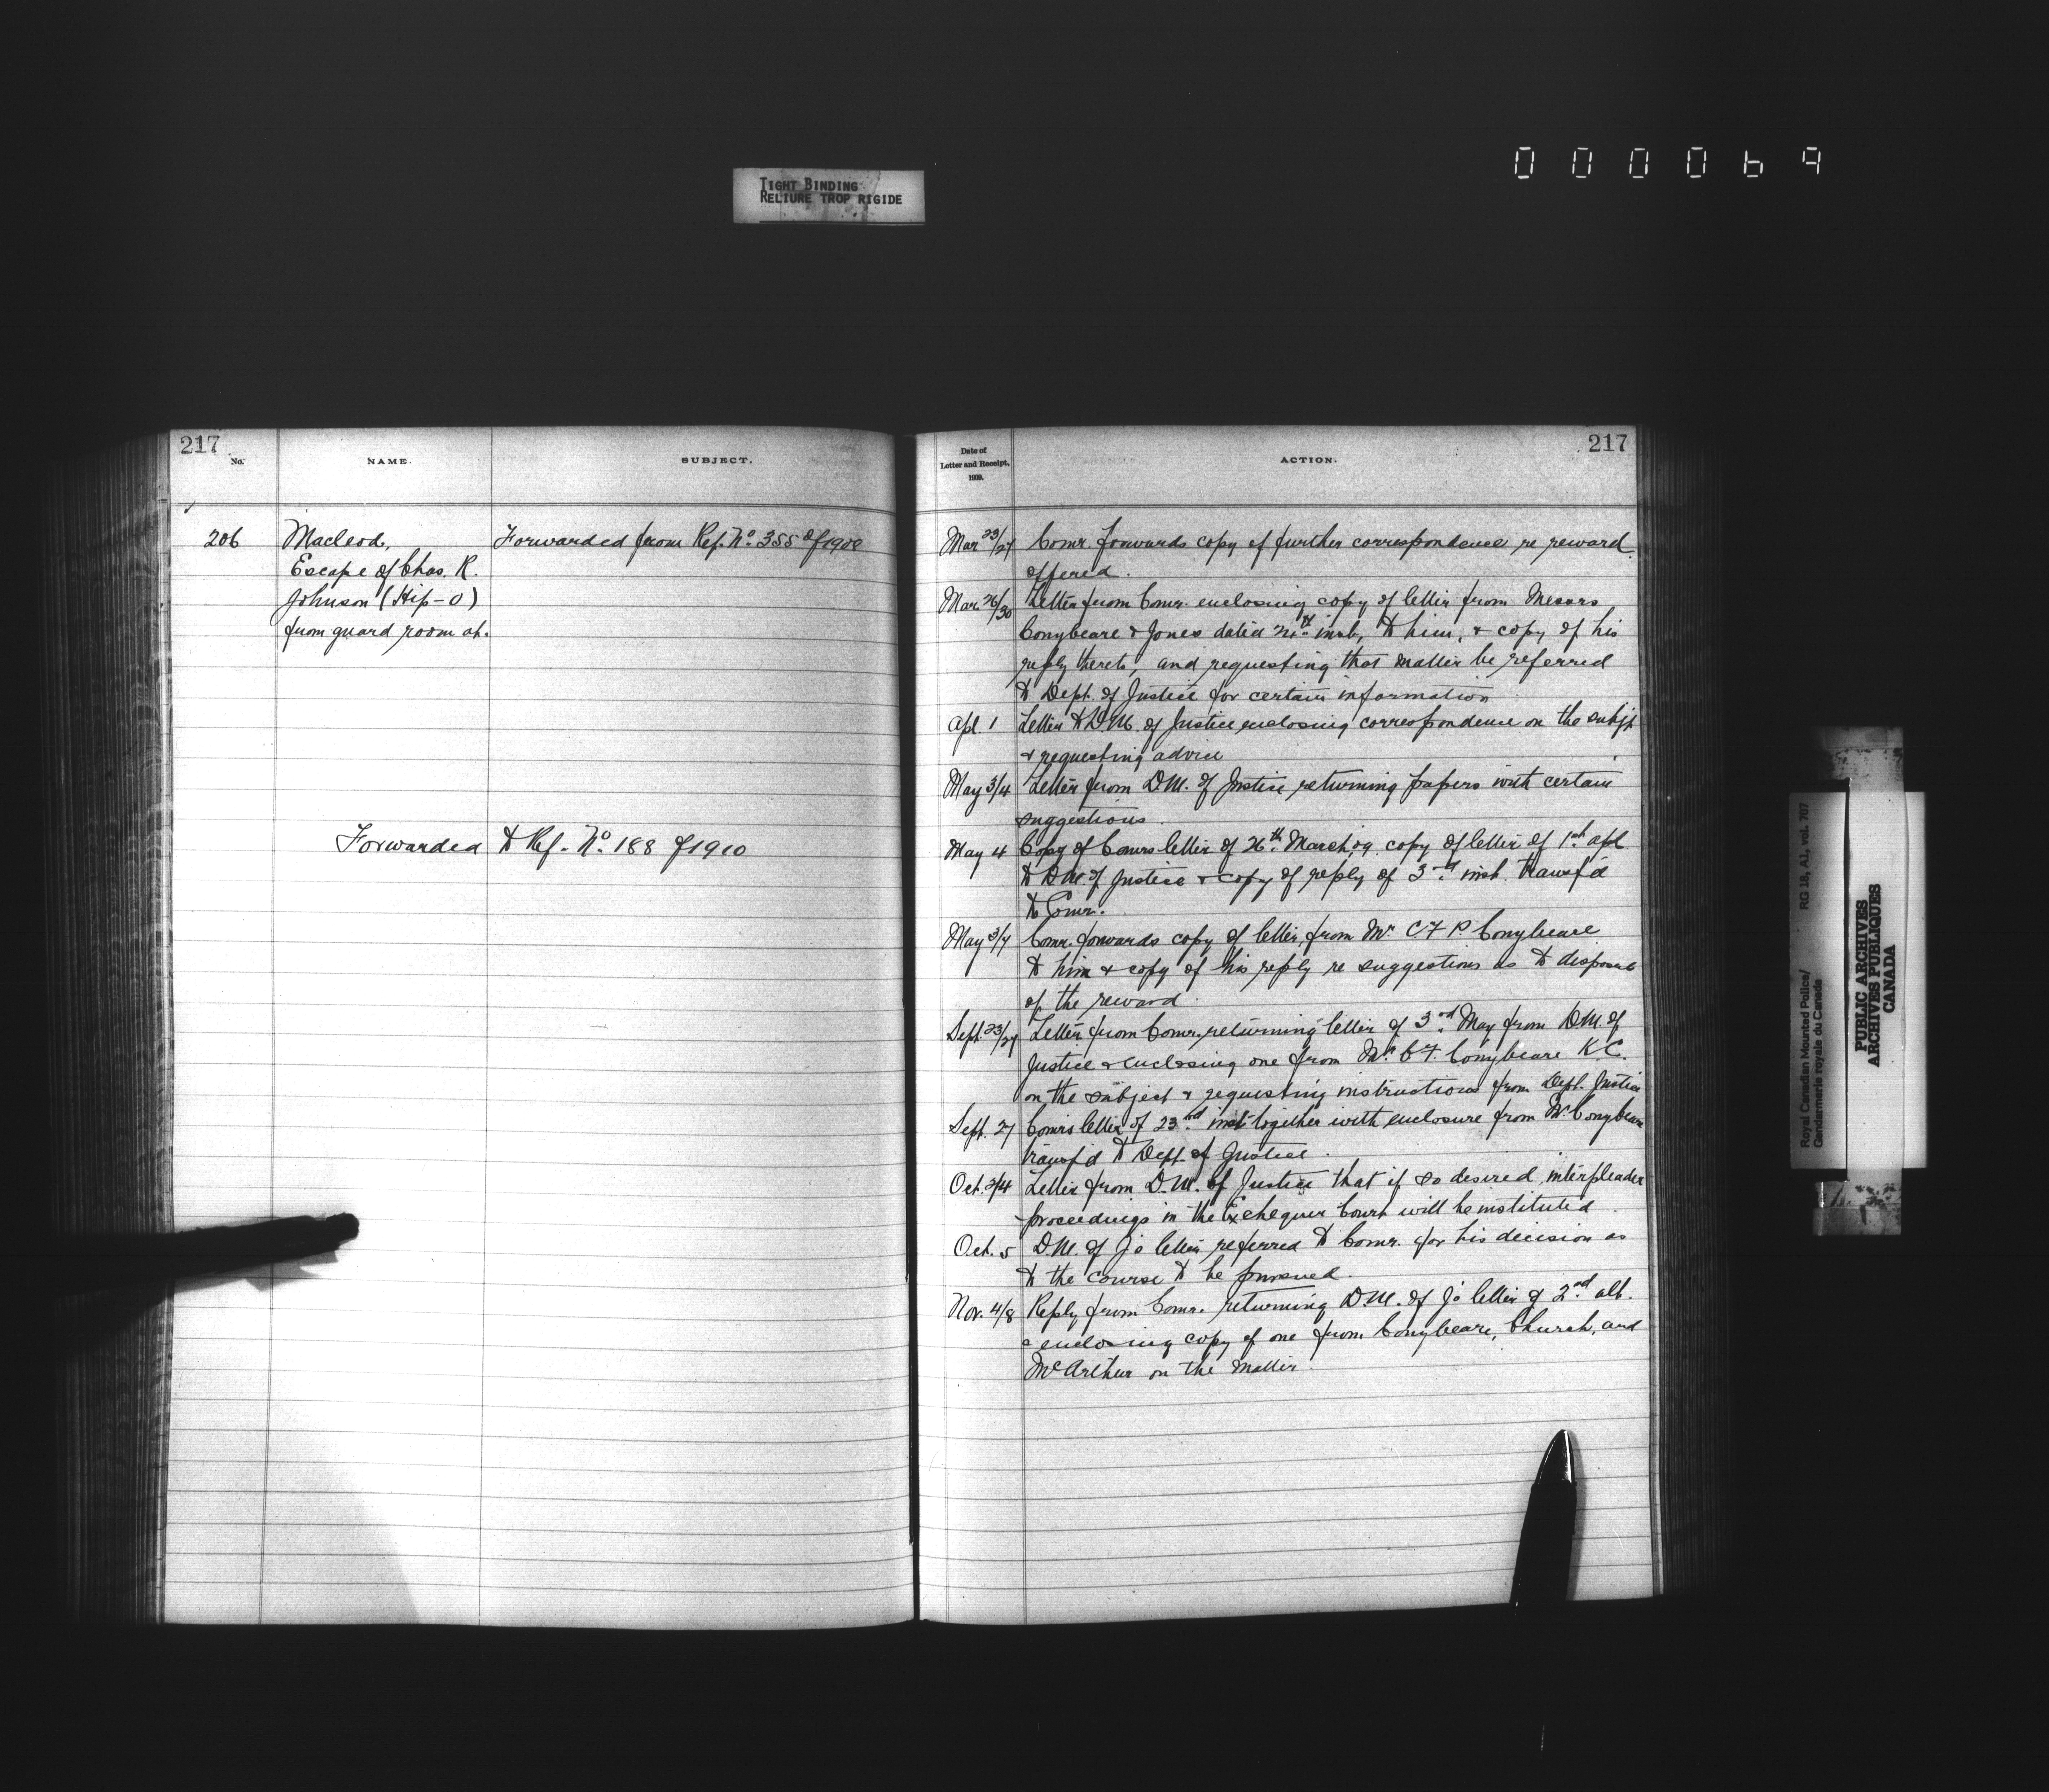 000069
TIGHT BINDING
RELIURE TROP RIGIDE
217
No.
NAME.
SUBJECT.
206
Macleod,
Escape of Chas. R.
Johnson (Hip-O)
from guard room at.
Forwarded from Ref. No. 355 of 1908
Forwarded to Ref. No. 188 of 1910
217
Date of
Letter and Receipt,
1909.
ACTION.
Mar 23/27 Comr. forwards copy of further correspondence re reward
offered.
Mar. 26/30 Letter from Comr. enclosing copy of letter from Messrs
Conybeare & Jones dated inst, to him, & copy of his
reply thereto, and requesting that matter be referred
to Dept. of Justice for certain information
Apl. 1 Letter to D.M. of Justice enclosing correspondence on the subjt
& requesting advice
May 3/4 Letter from D.M. of Justice returning papers with certain
suggestions.
May 4 Copy of Comrs letter of 26th March, 09, copy of letter of 1st apl
to D.M. of Justice & copy of reply of 3rd inst. transf'd
to Comr.
May 3/7 Comr. forwards copy of letter from Mr C F P. Conybeare
to him & copy of his reply re suggestions as to disposal
of the reward.
Sept. 23/27 Letter from Comr. returning letter of 3rd May from D.M. of
Justice & enclosing one from Mr. C.F. Conybeare K.C.
on the subject & requesting instructions from Dept. Justice
Sept. 27 Comrs letter of 23rd inst together with enclosure from Mr Conybeare
transf'd to Dept. of Justice.
Oct. 2/4 Letter from D.M. of Justice that if so desired, interpleader
proceedings in the Exchequer Court will be instituted
Oct. 5 D.M. of J's letter referred to Comr. for his decision as
to the course to be pursued.
Nov. 4/8 Reply from Comr. returning D.M. of J's letter of 2nd ult.
& enclosing copy of one from Conybeare, Church, and
McArthur on the matter.
Royal Canadian Mounted Police/ RG 18, A1, vol. 707
Gendarmerie royale du Canada
PUBLIC ARCHIVES
ARCHIVES PUBLIQUES
CANADA